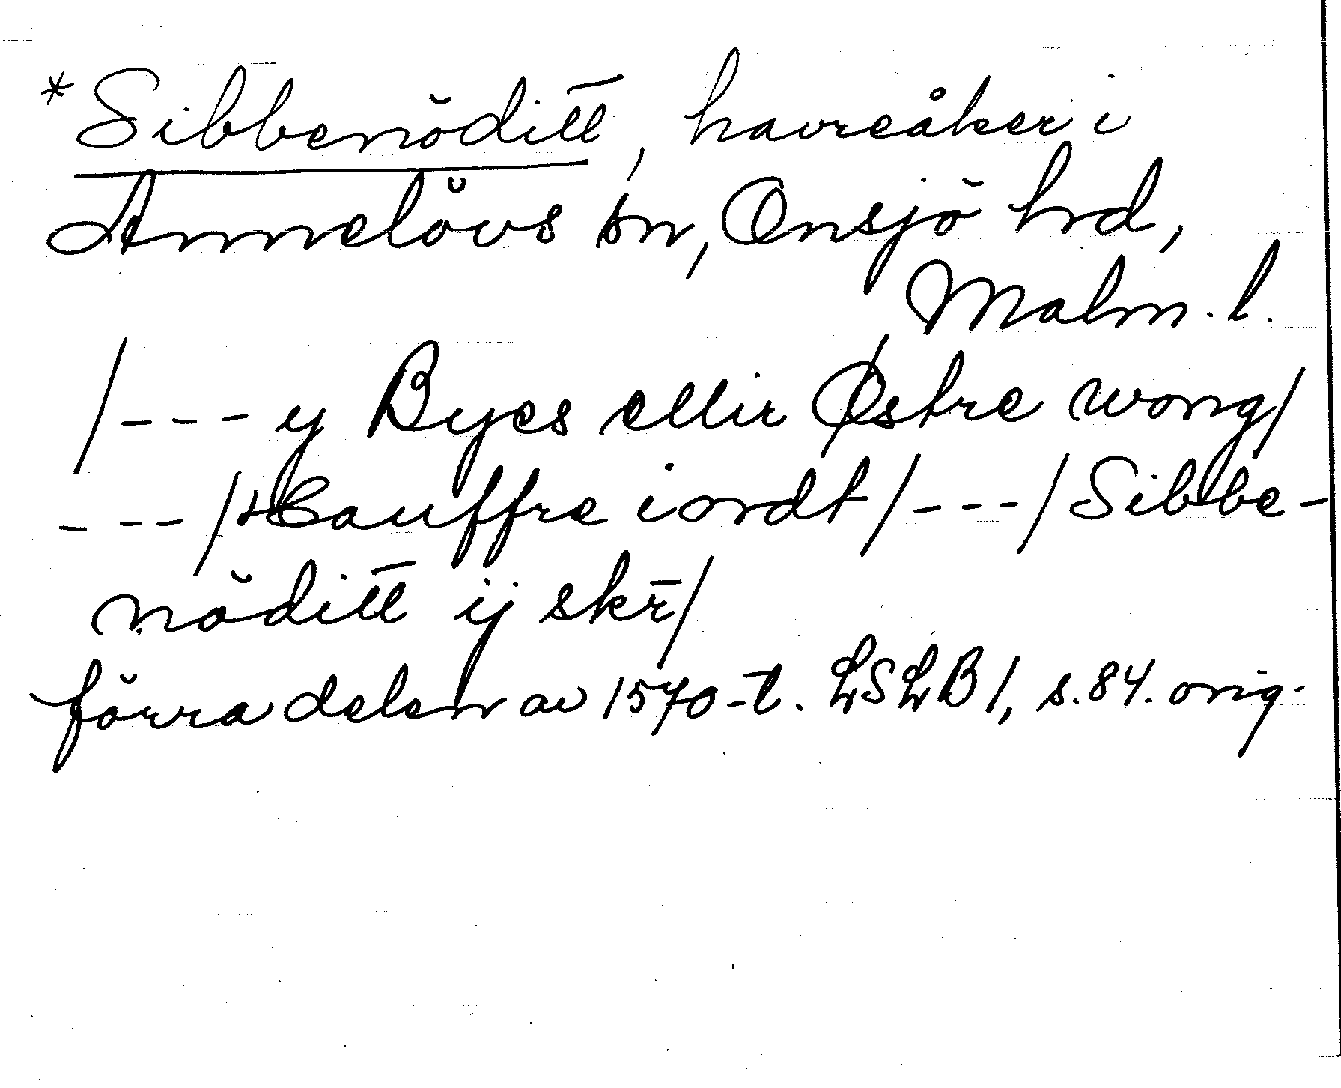 *Sibbenöditt̅, havreåker i
Annelövs sn, Onsjö hrd,
Malm. l.
/--- y Byes ellir Østre wong/
---/Hauffre iordt/---/Sibbe-
nöditt̅ ij skr̅/
förra delen av 1570-t. LSLB 1, s.84. orig.